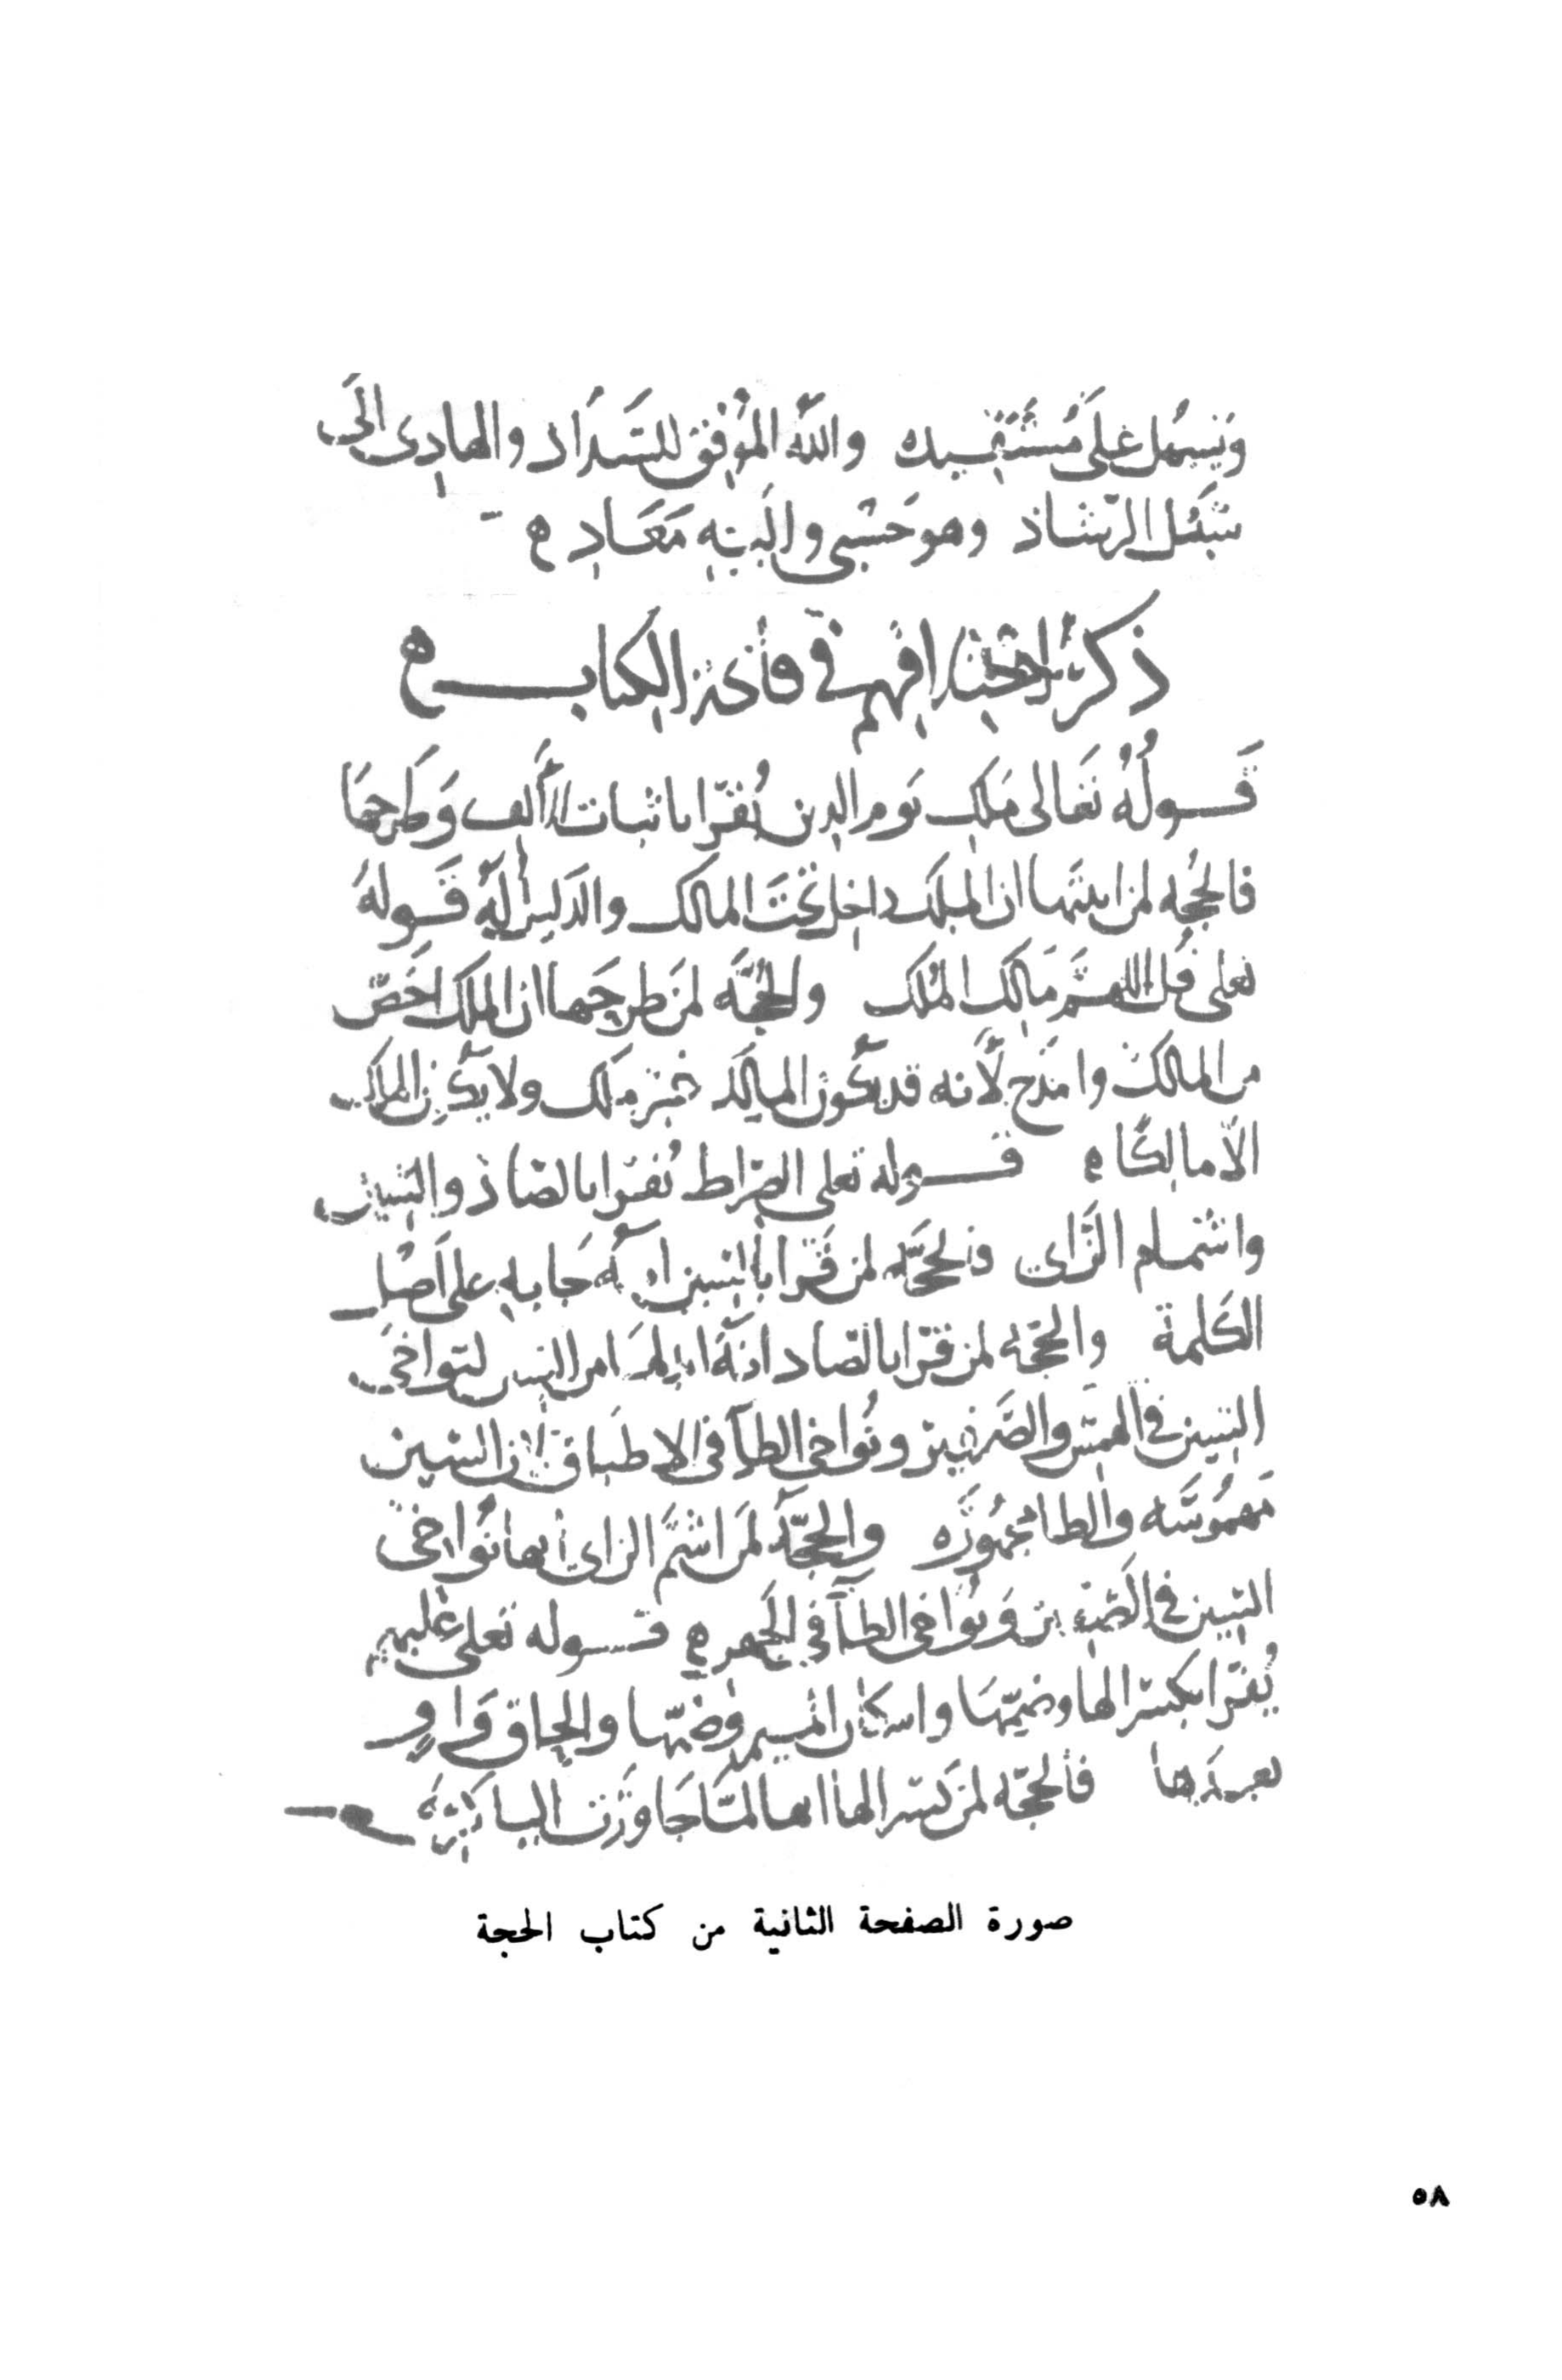 ويسهل على مستفيده والله الموفق للسداد والهادى الى
سبل الرشاد وهو حسبى واليه معاد ه
ذكر اختلافهم فى فاتحة الكتاب ه
قوله تعالى ملك يوم الدين يقرا باثبات الألف وطرحها
فالحجه لمن اثبتها ان الملك داخل تحت المالك والدليل له قوله
تعلى قل اللهم مالك الملك والحجّة لمن طرحها ان الملك اخصّ
من المالك وامدح لأنه قد يكون المالك غير ملك ولا يكون الملك
الّا مالكا ه قوله تعلى الصراط يقرا بالصاد والسين
واشمام الزاى فالحجّه لمن قرا بالسين انه جا به على اصل
الكلمة والحجّه لمن قرا بالصاد انه ابدلها من السين لتواخى
السين فى الهمس والصفير وتواخى الطآ فى الاطباق لان السين
مهموسه والطا مجهوره والحجّه لمن اشمّ الزاى انها تواخى
السين فى الصفير وتواخى الطآ فى الجهر ه قوله تعلى عليهم
يقرا بكسر الها وضمّها واسكان الميم وضمّها والحاق واو
بعدها فالحجّه لمن كسر الها انها لمّا جاورت اليا
صورة الصفحة الثانية من كتاب الحجة
٥٨